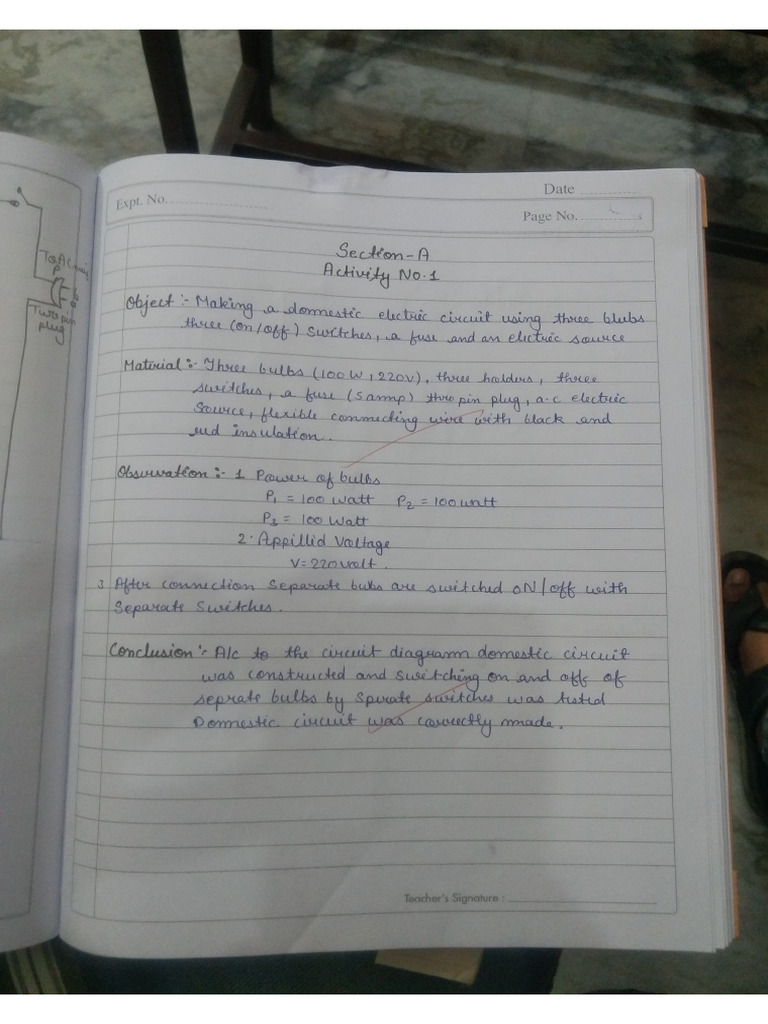 To A.C mains
P
Two pin
plug
Expt. No.
Date
Page No.
Section-A
Activity No.1
Object :- Making a dommestic electric circuit using three blubs
three (on/off) switches, a fuse and an electric source
Material :- Three bulbs (100 W, 220V), three holders, three
switches, a fuse (5 amp) thro pin plug, a.c electric
source, flexible connecting wire with black and
red insulation.
Observation :- 1 Power of bulbs
P1 = 100 watt P2 = 100 watt
P3 = 100 Watt
2. Appillid Voltage
V = 220 volt.
3. After connection separate bubs are switched ON/off with
Separate Switches.
Conclusion :- A/c to the circuit diagramm domestic circuit
was constructed and switching on and off of
seprate bulbs by Sprate switches was tested
Dommestic circuit was correctly made.
Teacher's Signature :